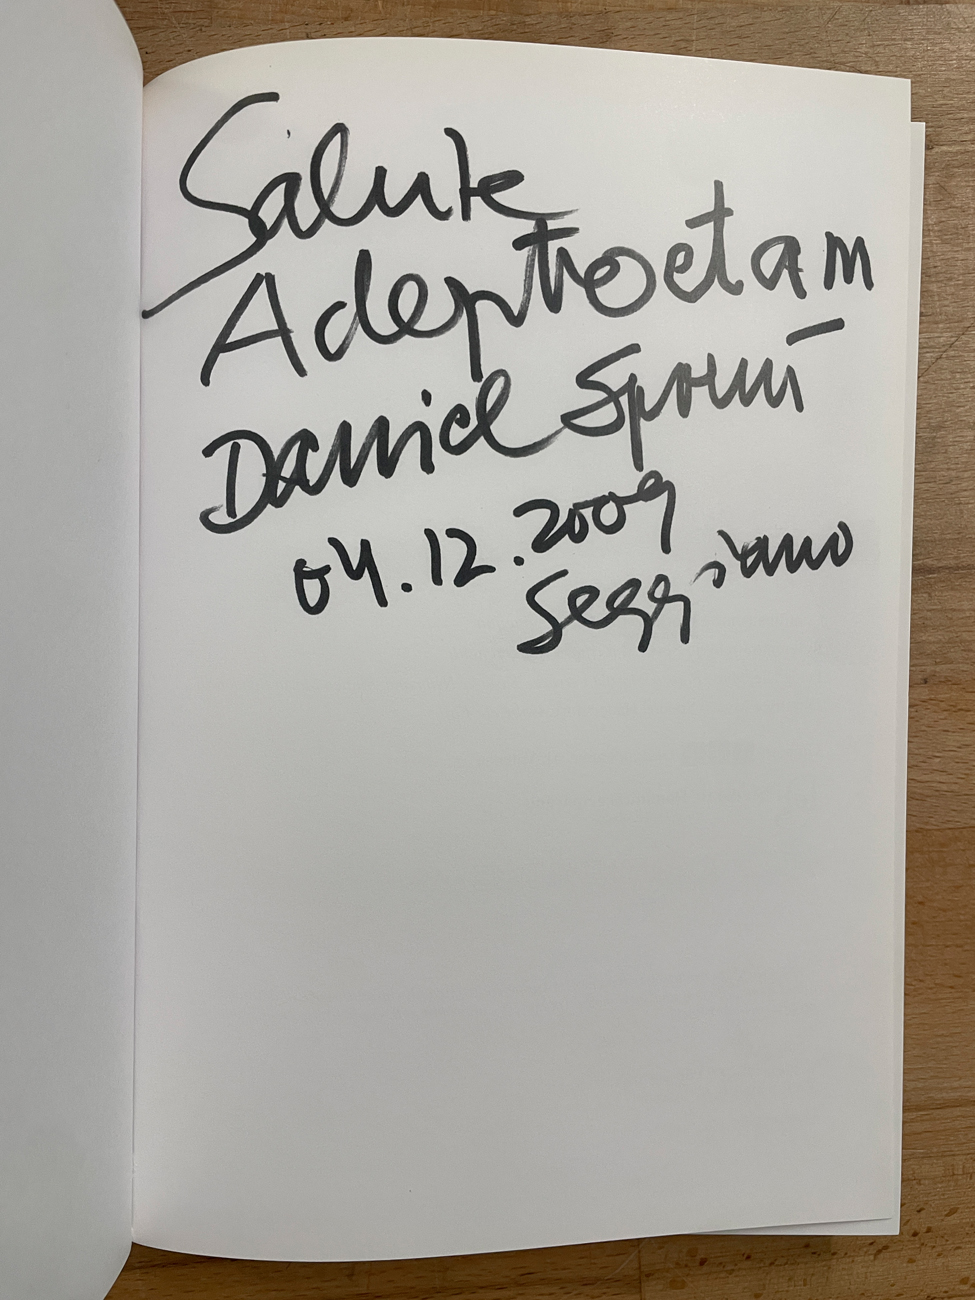 Salute
Adeptroetam
Daniel Spoerri
04.12.2009
Seggiano